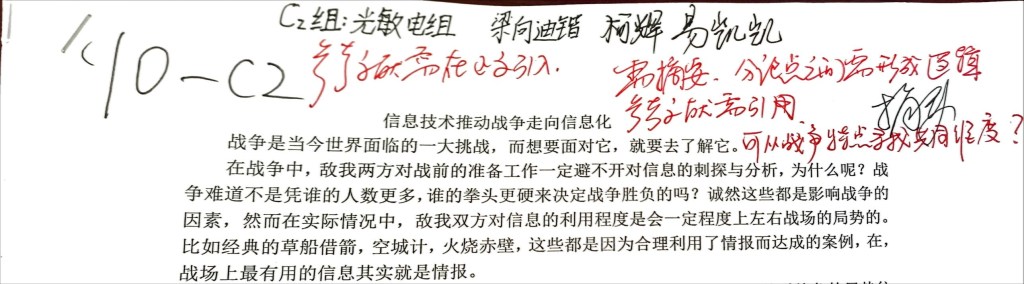 C2组:光敏电组 梁向迪锴 柯辉 易凯凯
10-C2
参考文献需在正文引入.
需摘要. 分论点之间需形成逻辑
参考文献需引用
可从战争特点寻找共同维度?
信息技术推动战争走向信息化
战争是当今世界面临的一大挑战，而想要面对它，就要去了解它。
在战争中，敌我两方对战前的准备工作一定避不开对信息的刺探与分析，为什么呢？战
争难道不是凭谁的人数更多，谁的拳头更硬来决定战争胜负的吗？诚然这些都是影响战争的
因素，然而在实际情况中，敌我双方对信息的利用程度是会一定程度上左右战场的局势的。
比如经典的草船借箭，空城计，火烧赤壁，这些都是因为合理利用了情报而达成的案例，在，
战场上最有用的信息其实就是情报。